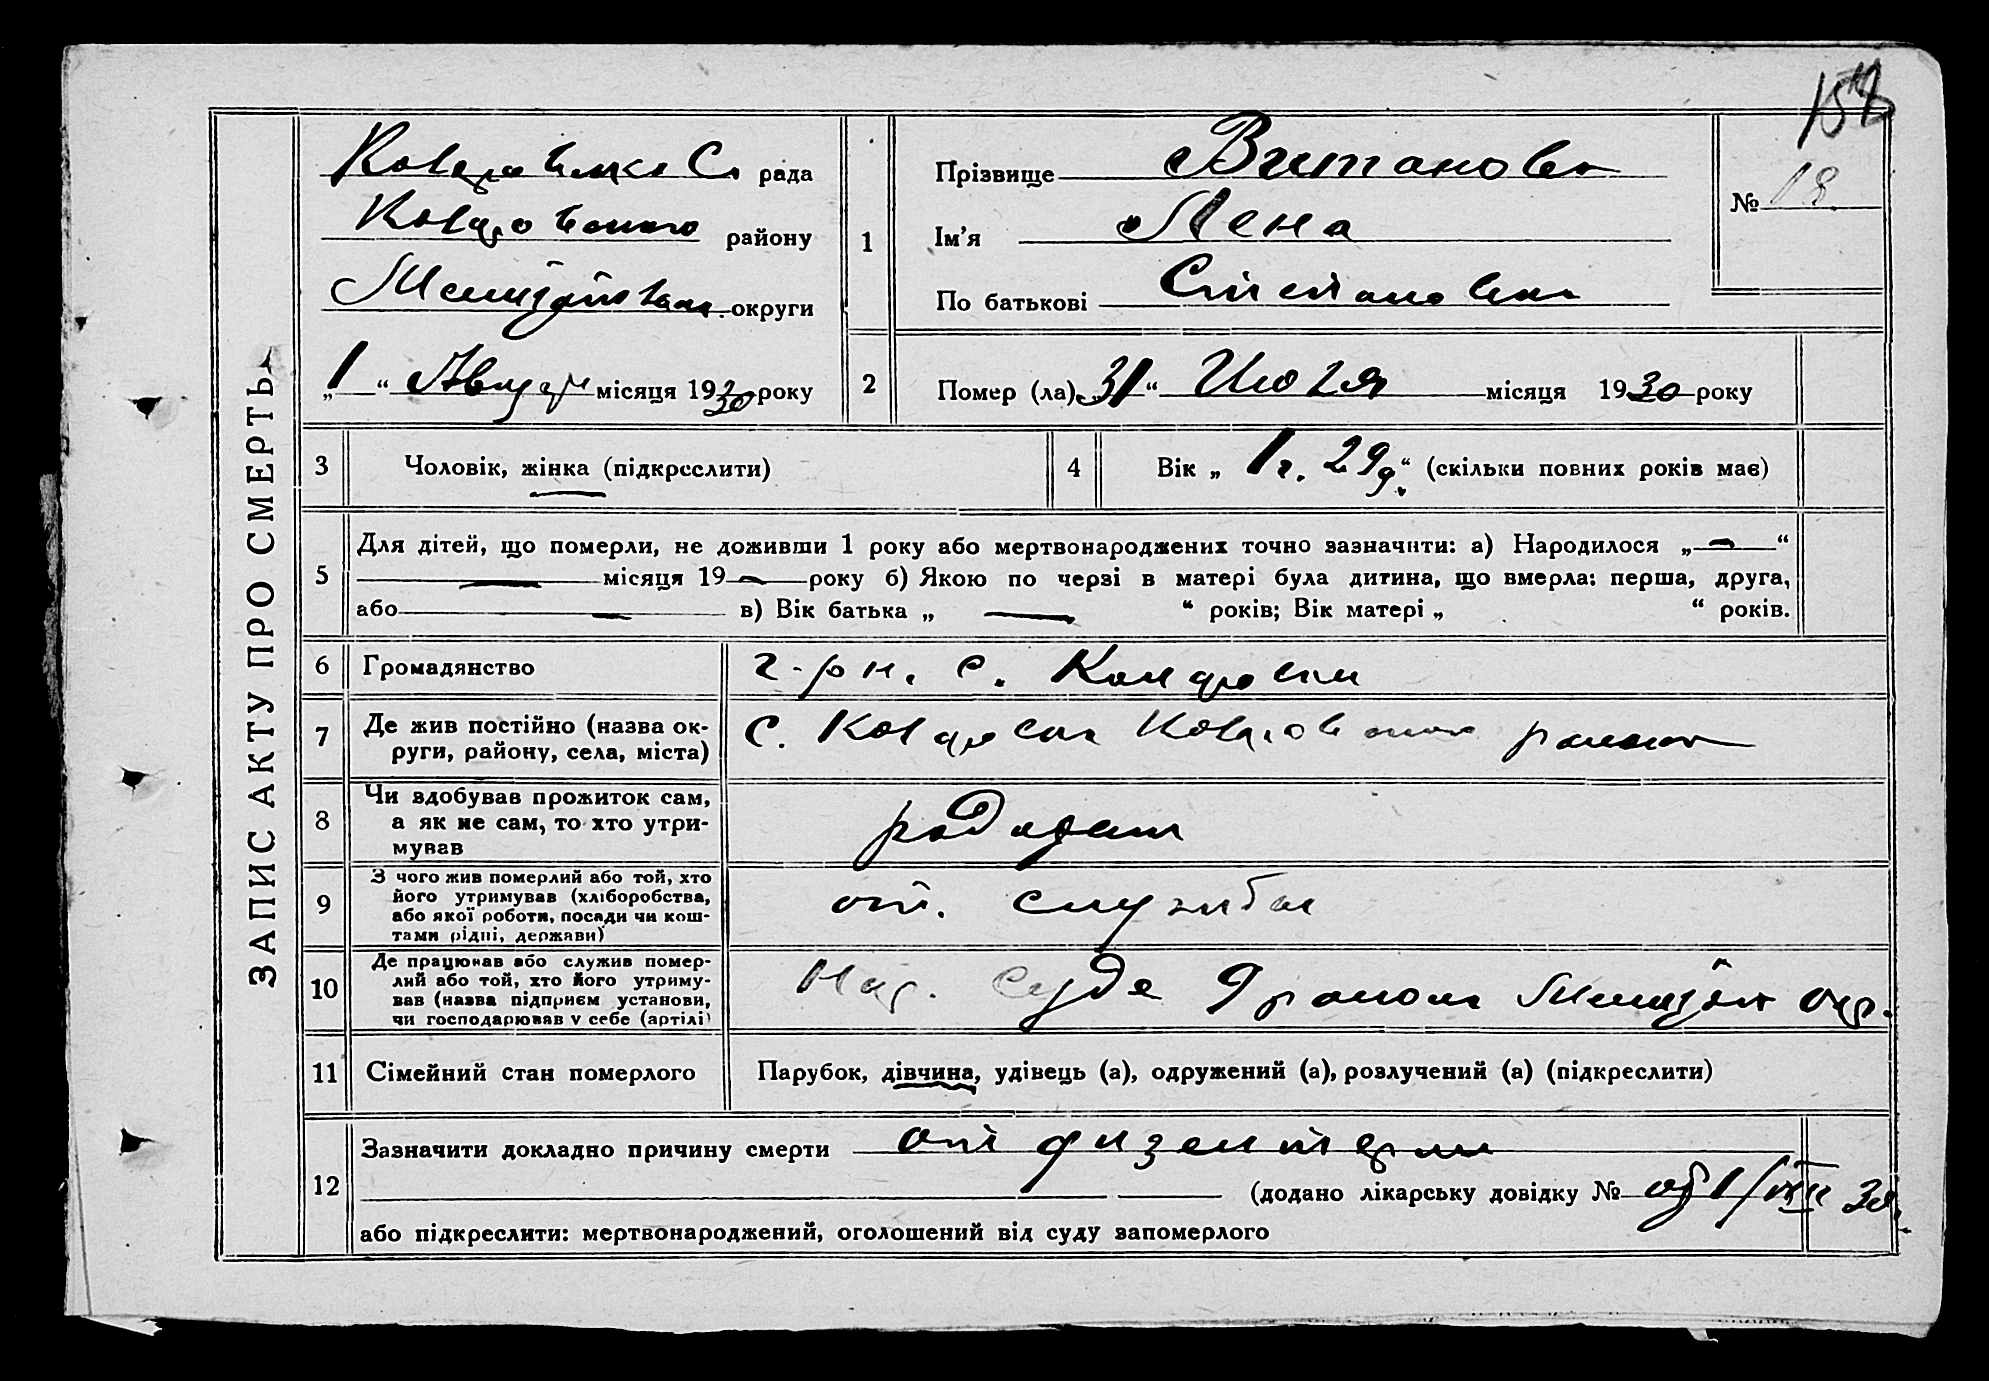 ЗАПИС АКТУ ПРО СМЕРТЬ
рада
району
округи
„1“ Август місяця 1930 року
1
Прізвище Витанова
Ім’я Лена
По батькові Степановна
№ 18.
2
Помер (ла) 31“ Июля місяця 1930 року
3 Чоловік, жінка (підкреслити)
4 Вік „1 г. 29 д.“ (скільки повних років має)
5
Для дітей, що померли, не доживши 1 року або мертвонароджених точно зазначити: а) Народилося „—“
— місяця 19— року б) Якою по черзі в матері була дитина, що вмерла: перша, друга,
або — в) Вік батька „ — “ років; Вік матері „ “ років.
6 Громадянство г-рн. с.
7 Де жив постійно (назва ок-
руги, району, села, міста)
с.
8 Чи здобував прожиток сам,
а як не сам, то хто утри-
мував
родители
9 З чого жив померлий або той, хто
його утримував (хліборобства,
або якої роботи, посади чи кош-
тами рідні, держави)
от. службы
10 Де працював або служив помер-
лий або той, хто його утриму-
вав (назва підприєм установи,
чи господарював у себе (артілі)
Нар. Суде
11 Сімейний стан померлого Парубок, дівчина, удівець (а), одружений (а), розлучений (а) (підкреслити)
12
Зазначити докладно причину смерти от дизентерии
(додано лікарську довідку № от 1/VIII 30.
або підкреслити: мертвонароджений, оголошений від суду запомерлого